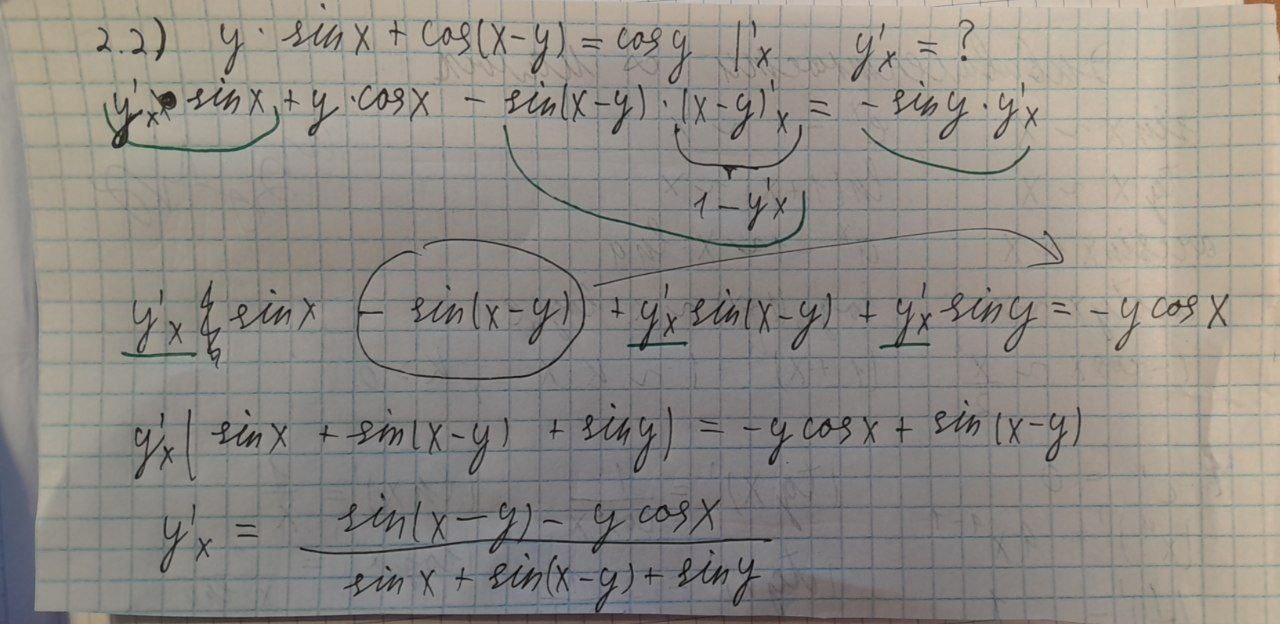 2.2) y · sinx + cos(x-y) = cosy |'x y'x = ?
y'x · sinx + y · cosx - sin(x-y) · (x-y)'x = -siny · y'x
1 - y'x
y'x sinx - sin(x-y) + y'x sin(x-y) + y'x siny = -y cosx
y'x( sinx + sin(x-y) + siny) = -y cosx + sin(x-y)
sin(x-y) - y cosx
y'x =
sinx + sin(x-y) + siny